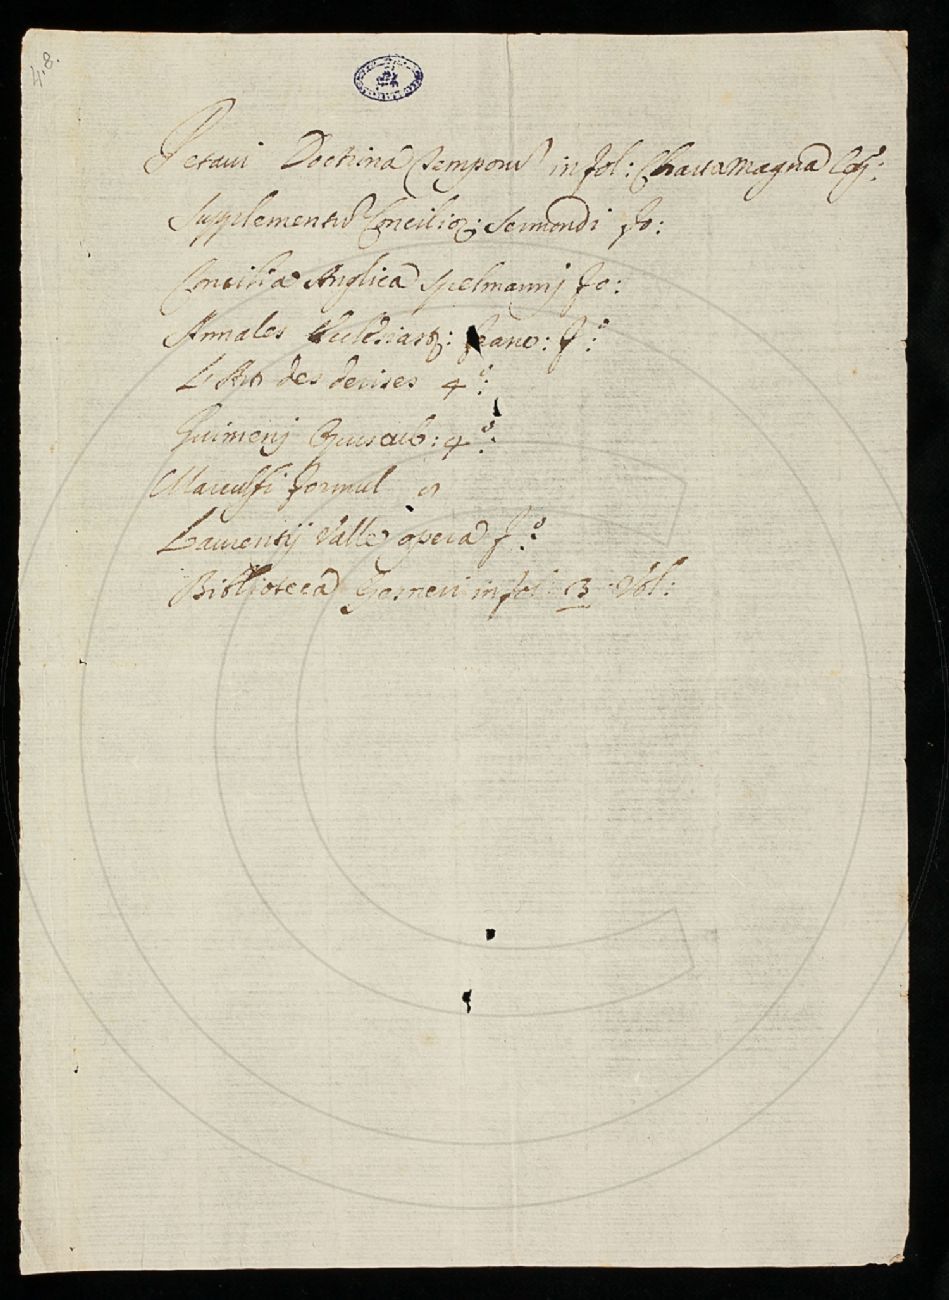 48.
Petaui Doctrina Temporũ in fol: Charta Magna
Supplementũ Concilior: Sermondi fo:
Concilia Anglica Spelmannj fo:
Annales Ecclesiast: franc: fº:
L'Art des deuises 4º:
Guimenij 4º:
Marculfi formul
Laurentij Valle opera fº:
Biblioteca Gesneri in fol 13 Vol: